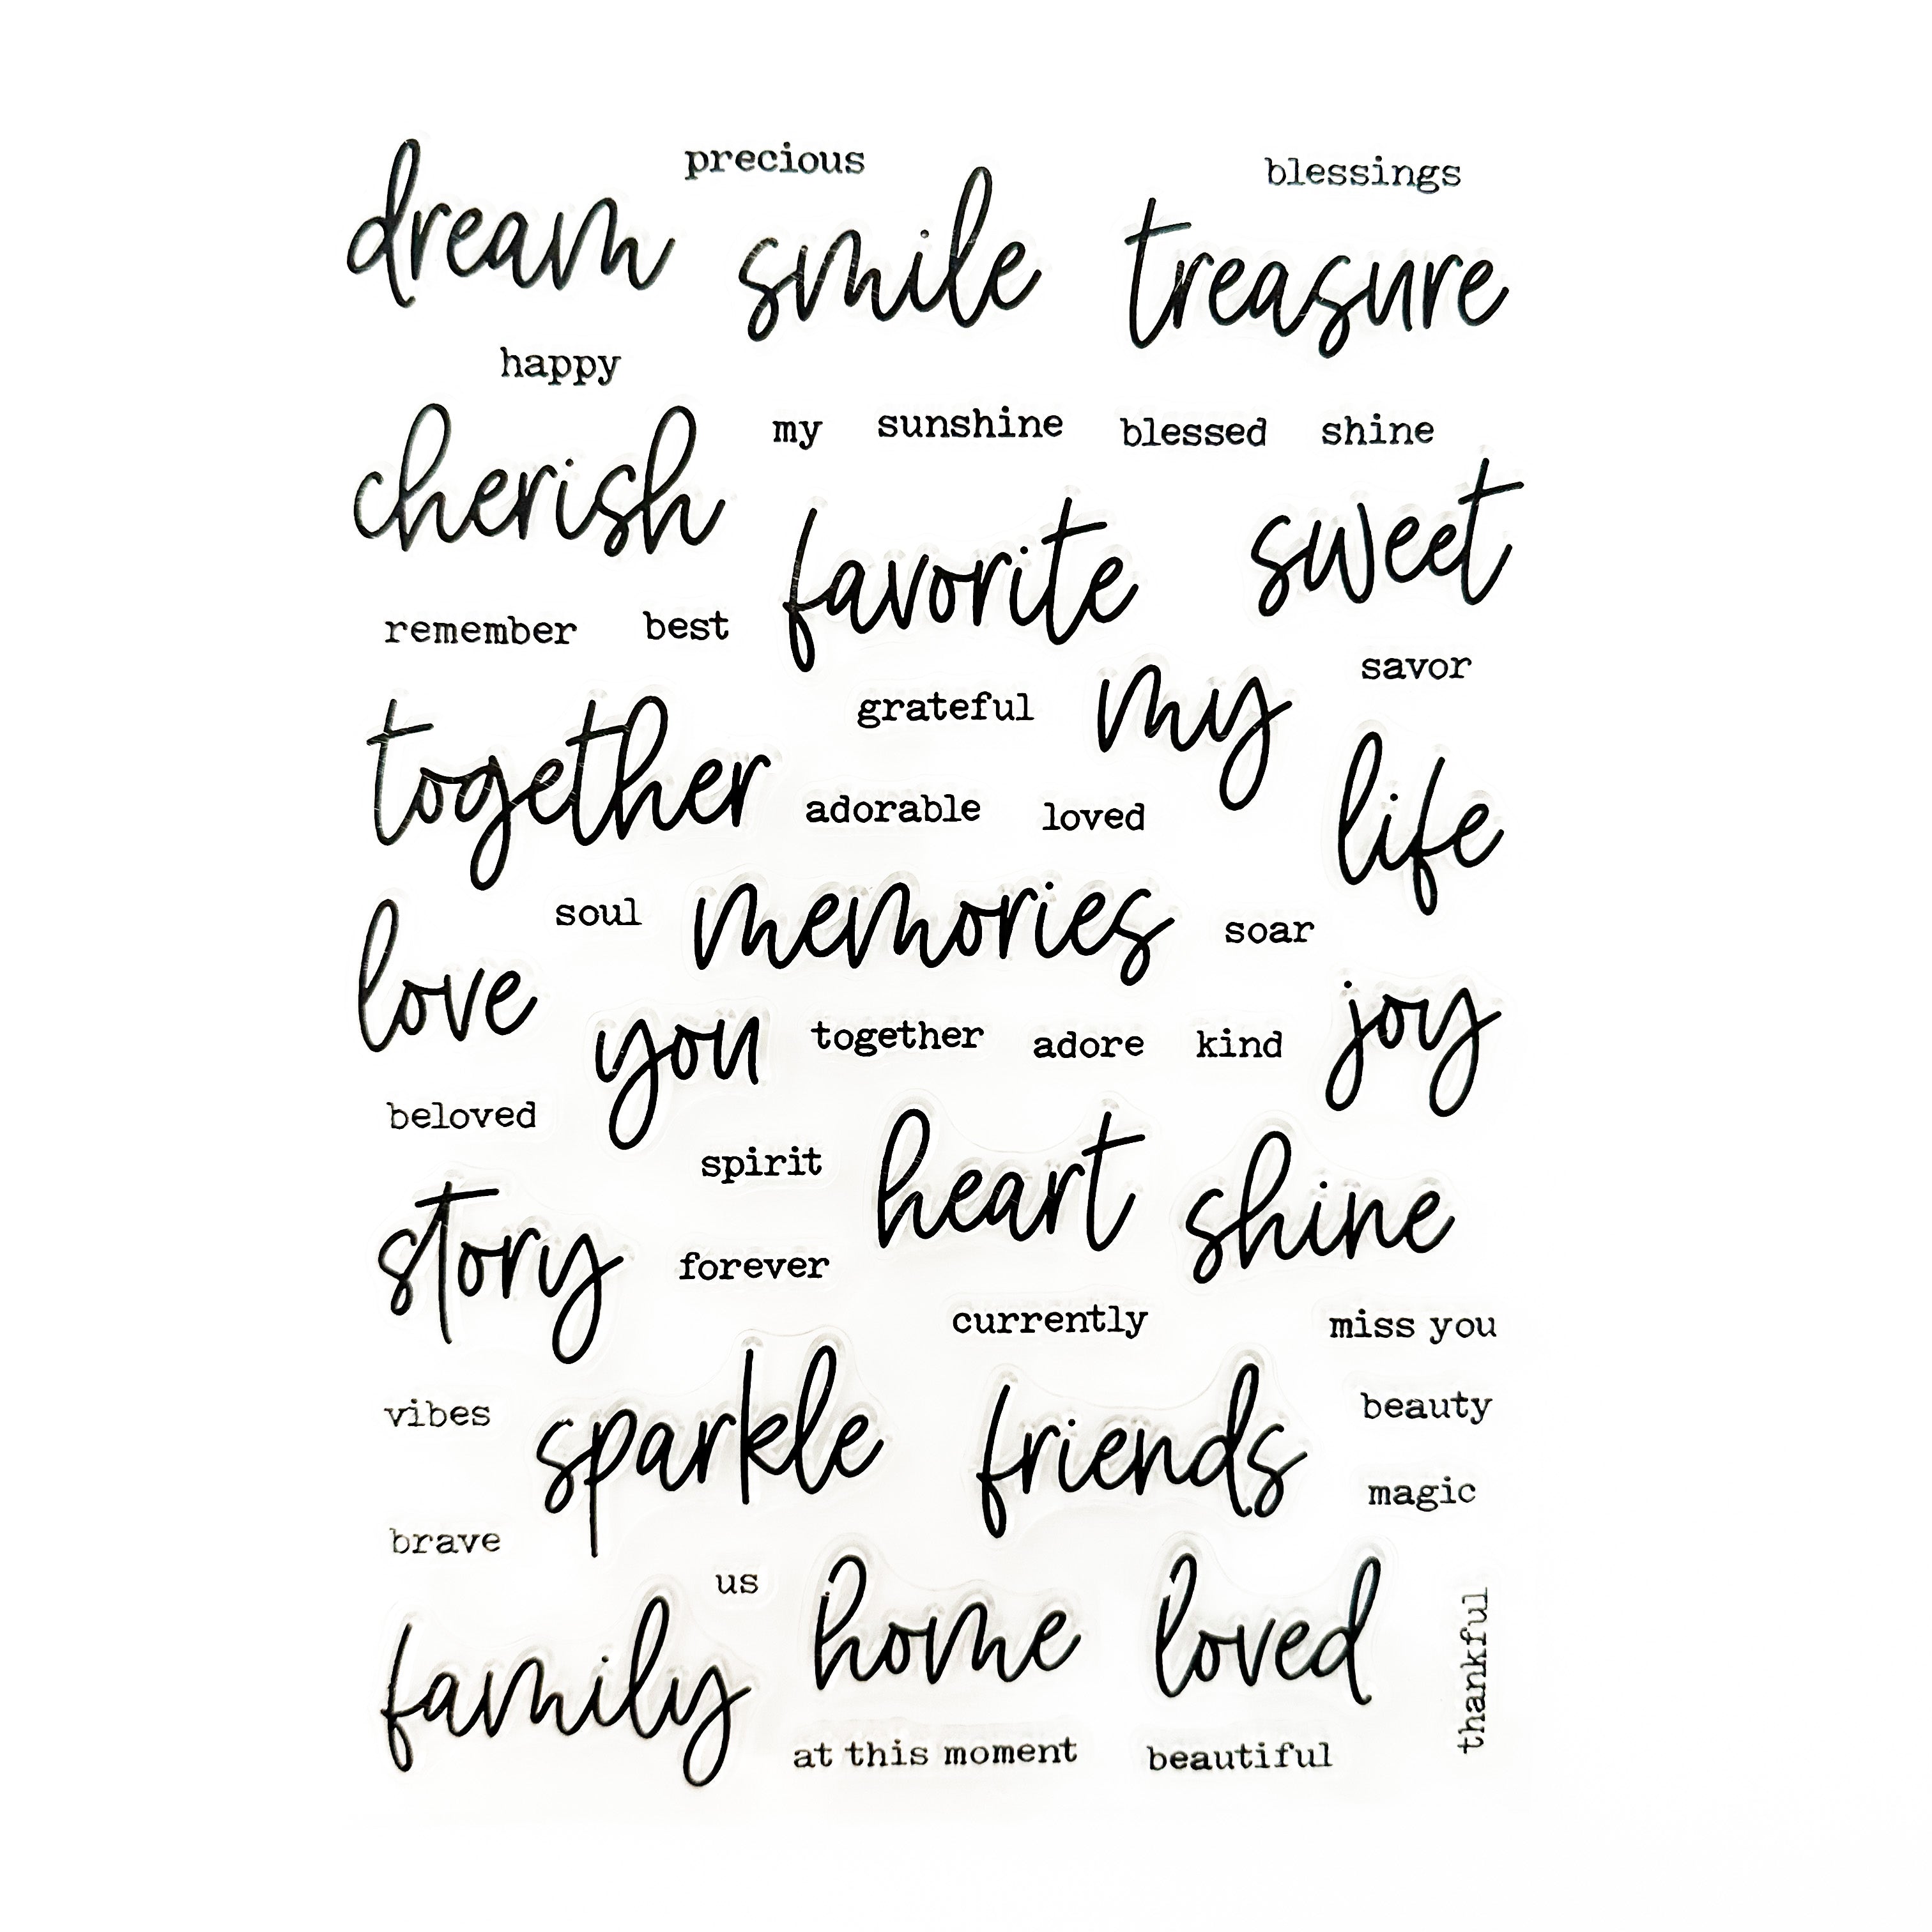 precious
blessings
dream
smile
treasure
happy
my
sunshine
blessed
shine
cherish
favorite
sweet
remember
best
savor
grateful
my
together
adorable
loved
life
soul
memories
soar
love
you
together
adore
kind
joy
beloved
spirit
heart
shine
story
forever
currently
miss you
vibes
sparkle
friends
beauty
magic
brave
us
home
loved
thankful
family
at this moment
beautiful